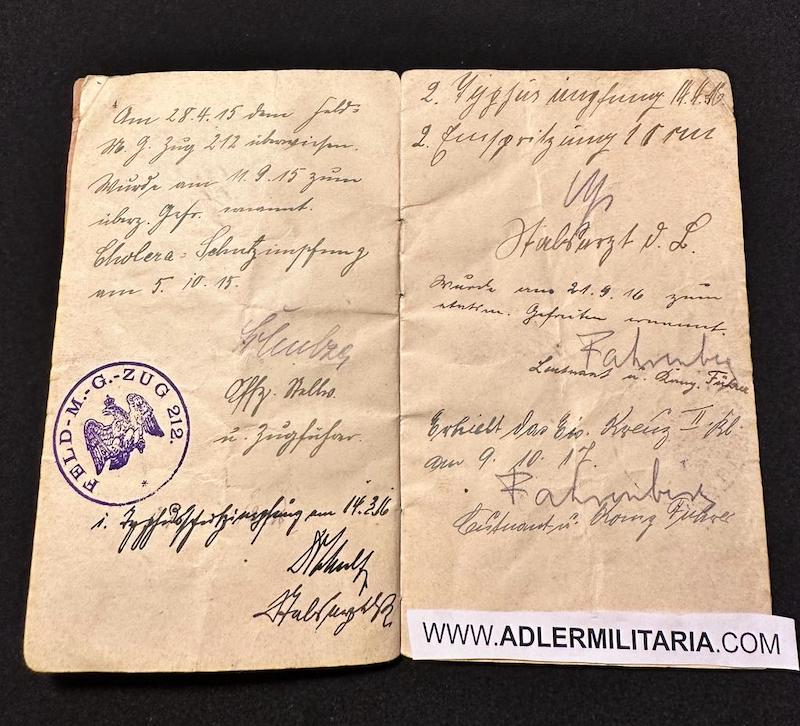 Am 28.4.15 dem Feld-
M. G. Zug 212 überwiesen.
Wurde am 11.9.15 zum
überz. Gefr. ernannt.
Cholera-Schutzimpfung
am 5. 10. 15.
Schulze
Offz. Stellv.
u. Zugführer.
FELD-M.-G.-ZUG 212.
1. Typhusschutzimpfung am 14.3.16
Stabsarzt d. R.
2. Typhus impfung 14.4.16
2. Einspritzung 1 ccm
Stabsarzt d. L.
Wurde am 21.9.16 zum
etatsm. Gefreiten ernannt.
Fahrenberg
Leutnant u. Komp. Führer
Erhielt das Eis. Kreuz II. Kl.
am 9. 10. 17.
Fahrenberg
Leutnant u. Komp Führer
WWW.ADLERMILITARIA.COM